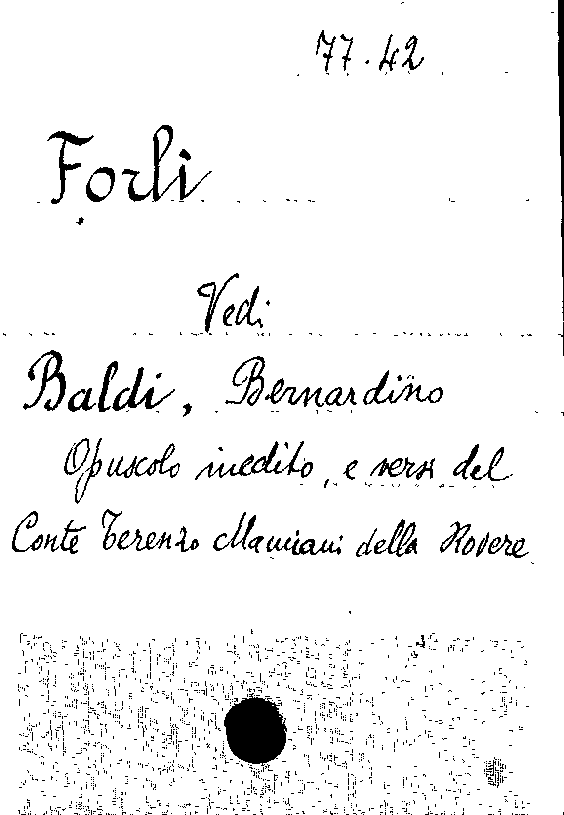 77.42
Forlì
Vedi
Baldi, Bernardino
Opuscolo inedito, e versi del
Conte Terenzo Mamiani della Rovere